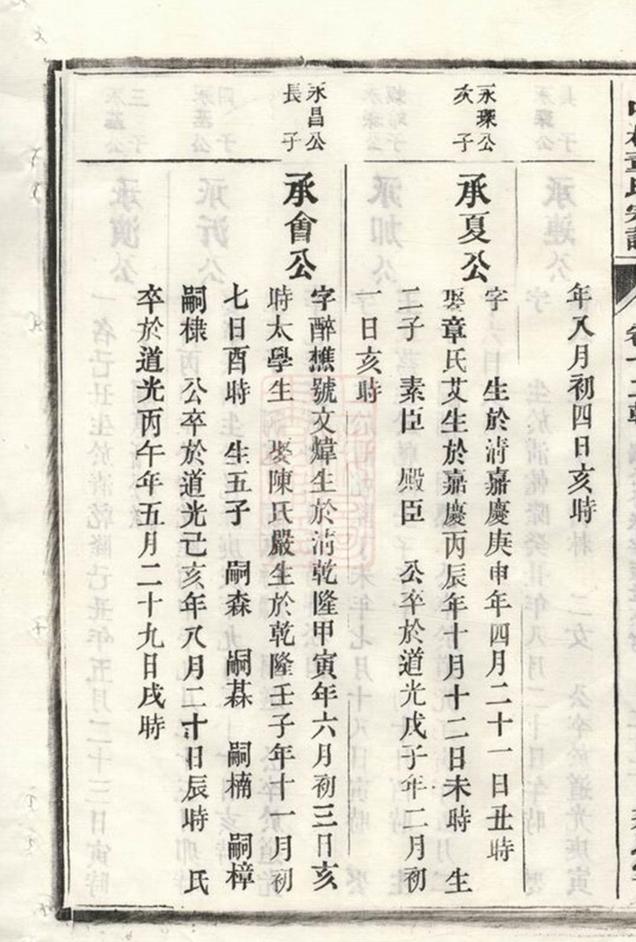 年八月初四日亥時
永琛公
次子
承夏公
字　生於清嘉慶庚申年四月二十一日丑時
娶章氏艾生於嘉慶丙辰年十月十二日未時　生
二子　素臣　殿臣　公卒於道光戊子年二月初
一日亥時
永昌公
長子
承會公
字醉樵號文煒生於清乾隆甲寅年六月初三日亥
時太學生　娶陳氏嚴生於乾隆壬子年十一月初
七日酉時　生五子　嗣森　嗣棊　嗣楠　嗣樟
嗣棣　公卒於道光己亥年八月二十日辰時　氏
卒於道光丙午年五月二十九日戌時